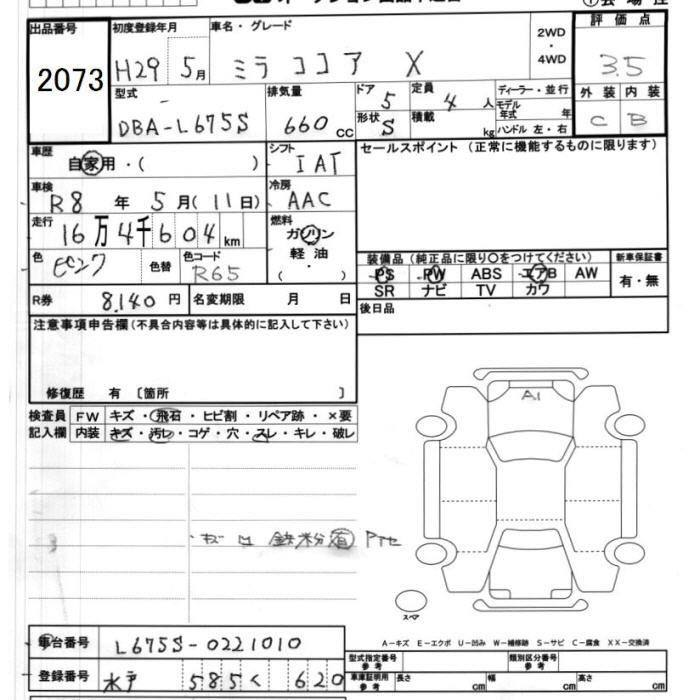 出品番号 初度登録年月 車名・グレード 2WD・4WD 評価点
2073 H29 5月 ミラココア X 3.5
型式 排気量 ドア 5 定員 4人 ディーラー・並行 外装 内装
モデル年式 年
DBA-L675S 660cc 形状 S 積載 kg ハンドル 左・右 C B
車歴 シフト セールスポイント (正常に機能するものに限ります)
自家用・( ) IAT
車検 冷房
R8年 5月(11日) AAC
走行 燃料
16万4千604km ガソリン
軽油・( )
色 ピンク 色替 色コード R65
装備品 (純正品に限り○をつけてください) 新車保証書
PS PW ABS エアB AW 有・無
SR ナビ TV カワ
R券 8,140円 名変期限 月 日 後日品
注意事項申告欄(不具合内容等は具体的に記入して下さい)
修復歴 有 〔箇所 〕
検査員 FW キズ・飛石・ヒビ割・リペア跡・×要
記入欄 内装 キズ・汚レ・コゲ・穴・スレ・キレ・破レ
A1
鉄粉有
スペア
A-キズ E-エクボ U-凹み W-補修跡 S-サビ C-腐食 XX-交換済
車台番号 L675S-0221010
型式指定番号 参考 類別区分番号 参考
登録番号 水戸 585 く 620
車庫証明用 参考 長さ cm 幅 cm 高さ cm